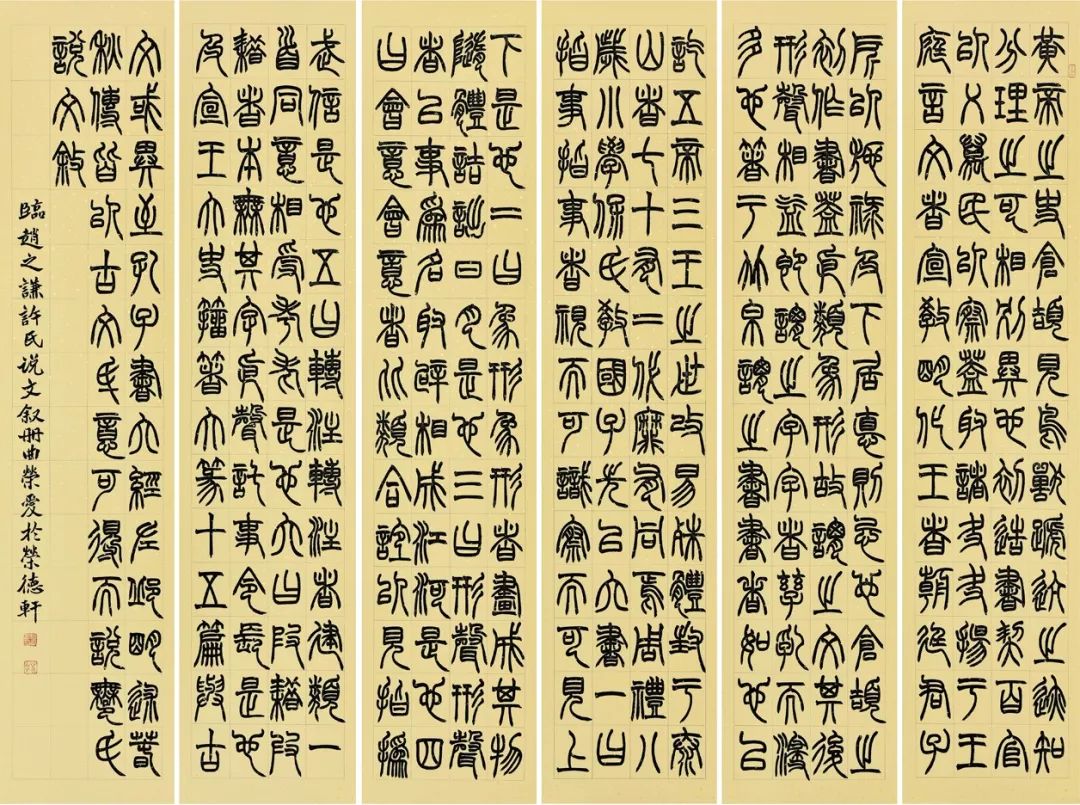 黄帝之史倉頡見鳥獸蹏迒之迹知
分理之可相别異也初造書契百官
㠯乂萬民㠯察蓋取諸夬夬揚于王
庭言文者宣教明化王者朝廷君子
所㠯施祿及下居悳則忌也倉頡之
初作書蓋依類象形故謂之文其後
形聲相益卽謂之字字者孳乳而浸
多也箸于竹帛謂之書書者如也㠯
訖五帝三王之世改易殊體封于泰
山者七十有二代靡有同焉周禮八
歲小學保氏教國子先㠯六書一曰
指事指事者視而可識察而可見上
下是也二曰象形象形者畫成其物
隨體詰詘日月是也三曰形聲形聲
者㠯事爲名取譬相成江河是也四
曰會意會意者比類合誼㠯見指撝
武信是也五曰轉注轉注者建類一
首同意相受考老是也六曰假藉假
藉者本無其字依聲託事令長是也
及宣王大史籀箸大篆十五篇與古
文或異至孔子書六經左邱明述萅
秋傳皆㠯古文氒意可得而說鄦氏
說文敘
臨趙之謙許氏说文叙册曲榮愛於榮德軒